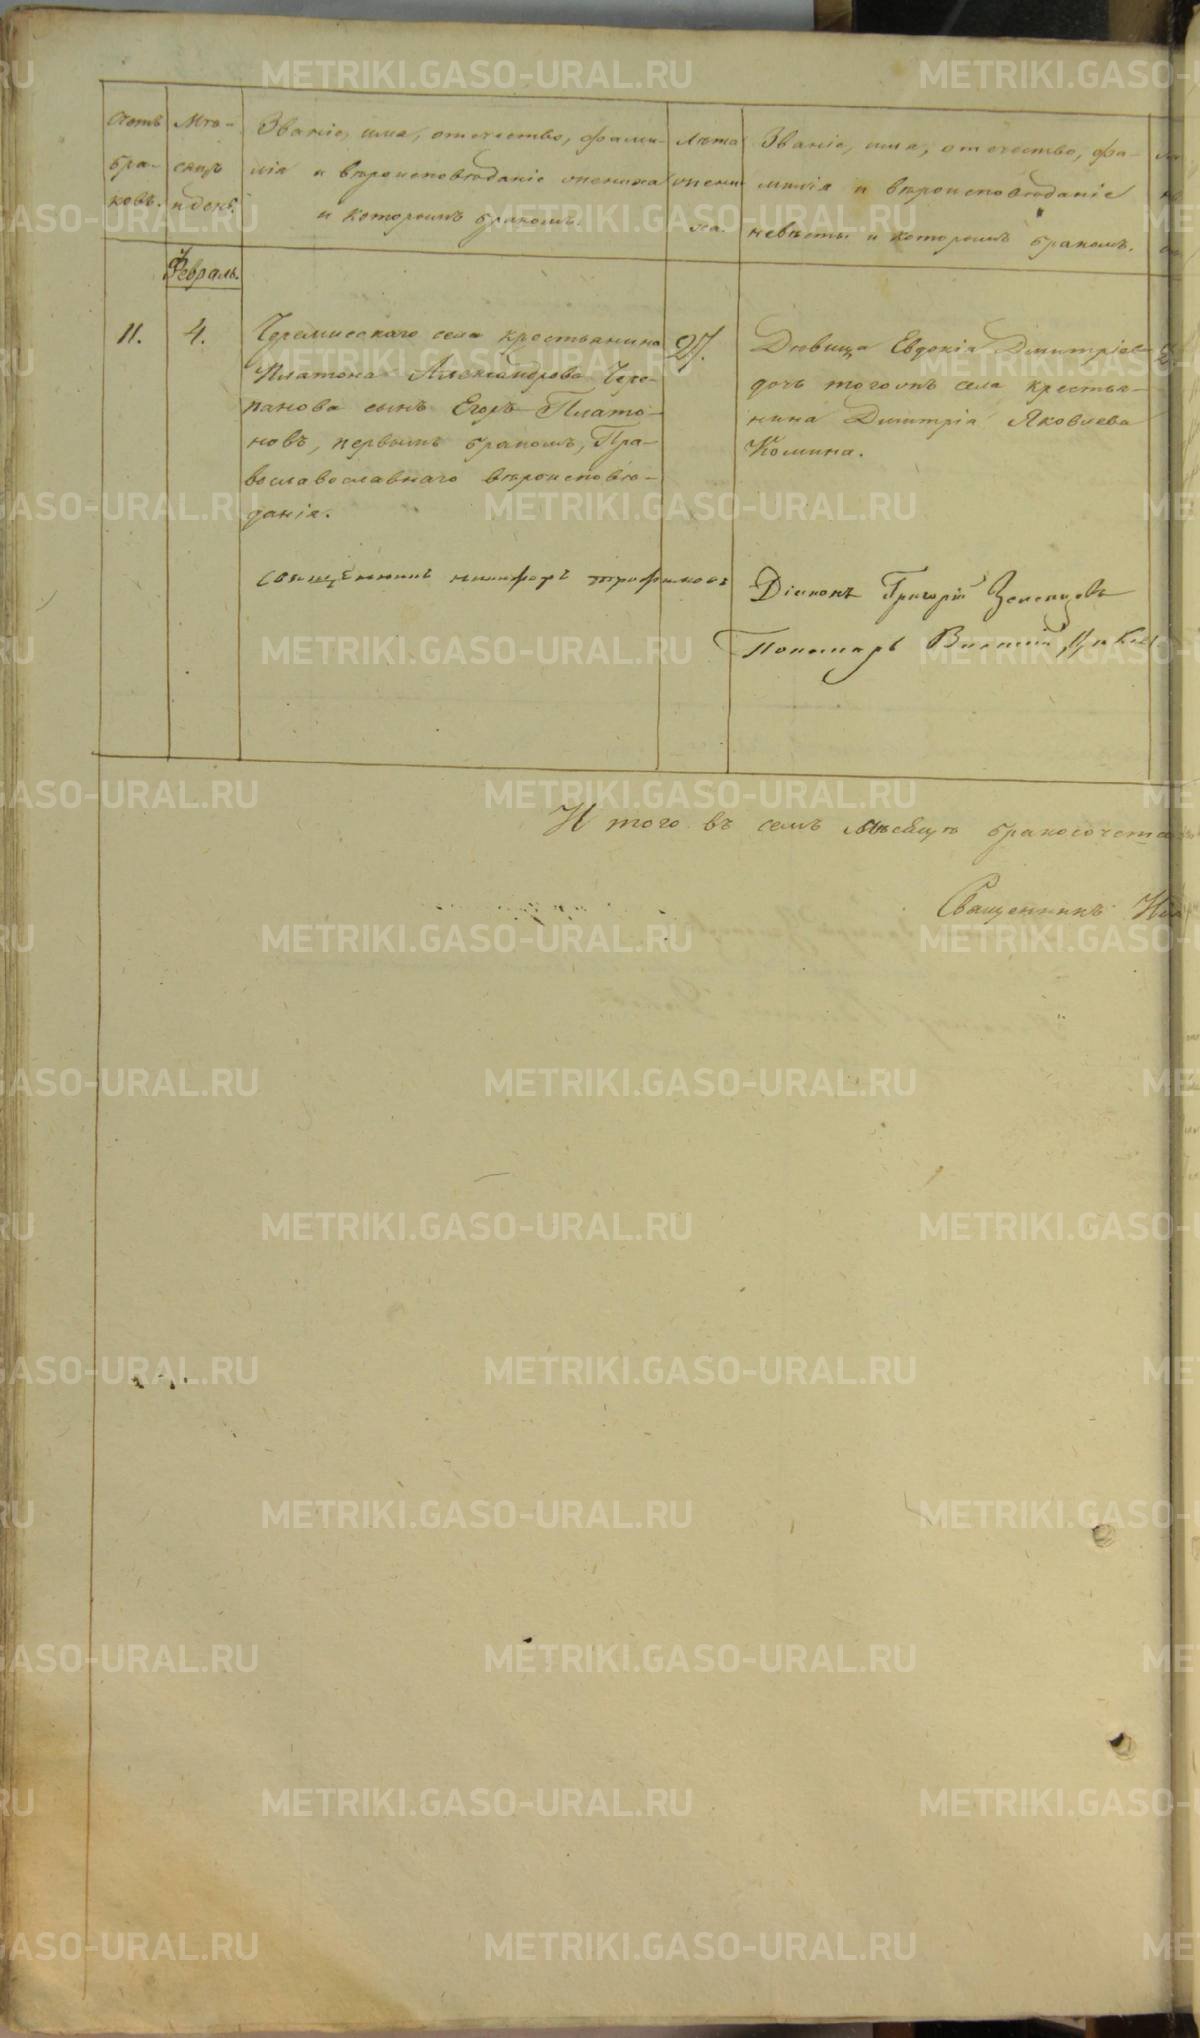 Счетъ бра- ковъ.
Мѣ- сяцъ и день.
Званіе, имя, отечество, фами-
лія и вѣроисповѣданіе жениха
и которымъ бракомъ.
Лѣта жени- ха.
Званіе, имя, отечество, фа-
милія и вѣроисповѣданіе
невѣсты и которымъ бракомъ.
Февраль.
11. 4.
Черемисскаго села крестьянина
Платона Александрова Чере-
панова сынъ Егоръ Плато-
новъ, первымъ бракомъ, Пра-
вославославнаго вѣроисповѣ-
данія.
27.
Дѣвица Евдокія Дмитріев
дочь тогожъ села крестья-
нина Дмитрія Яковлева
Комина.
священникъ никифоръ трофимовъ
Діаконъ Григорій
Пономарь
И того въ семъ мѣсяцѣ бракосочета
Священникъ
METRIKI.GASO-URAL.RU